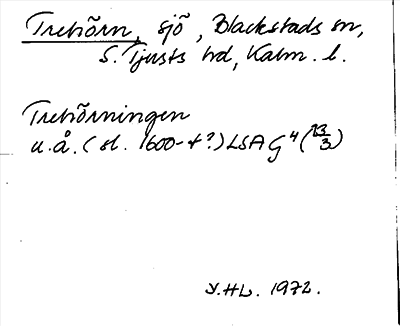 Trehörn, sjö, Blackstads sn,
S. Tjusts hd, Kalm. l.
Trehörningen
u.å. (sl. 1600-t?) LSA G 4 (13/3)
Y.HL. 1972.